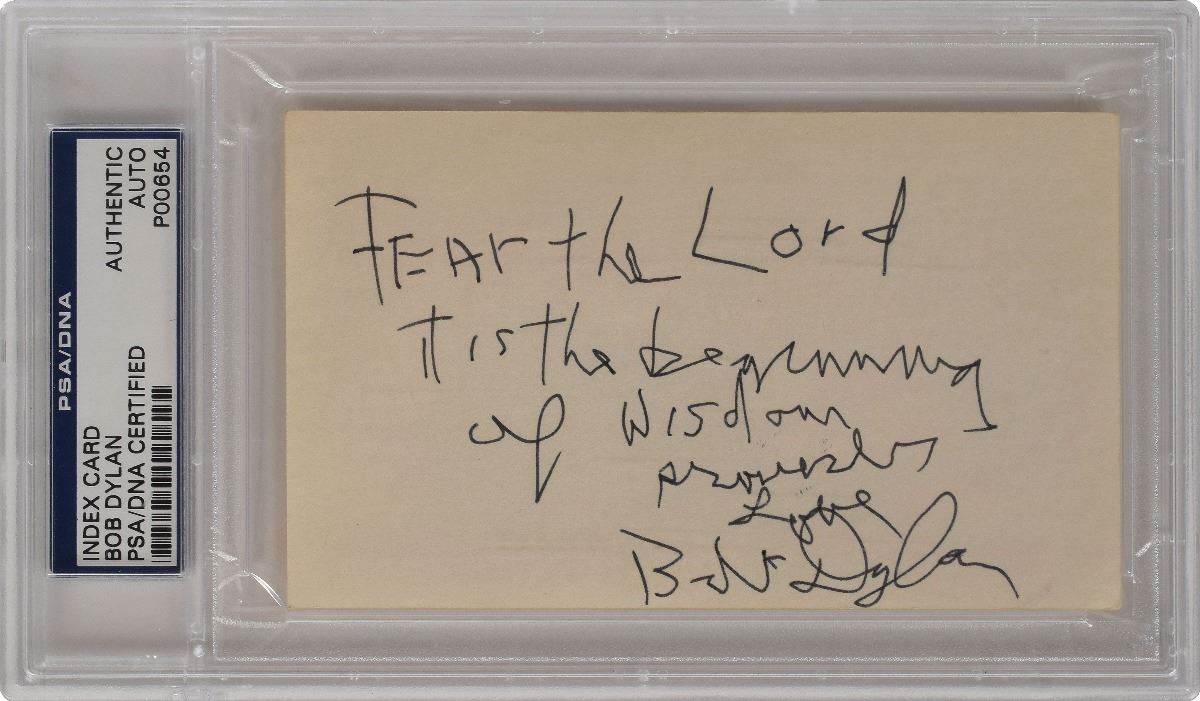 PSA/DNA
INDEX CARD
BOB DYLAN
PSA/DNA CERTIFIED
AUTHENTIC
AUTO
P00654
FEAr the Lord
IT is The beginning
of wisdom
proverbs
Love
Bob Dylan